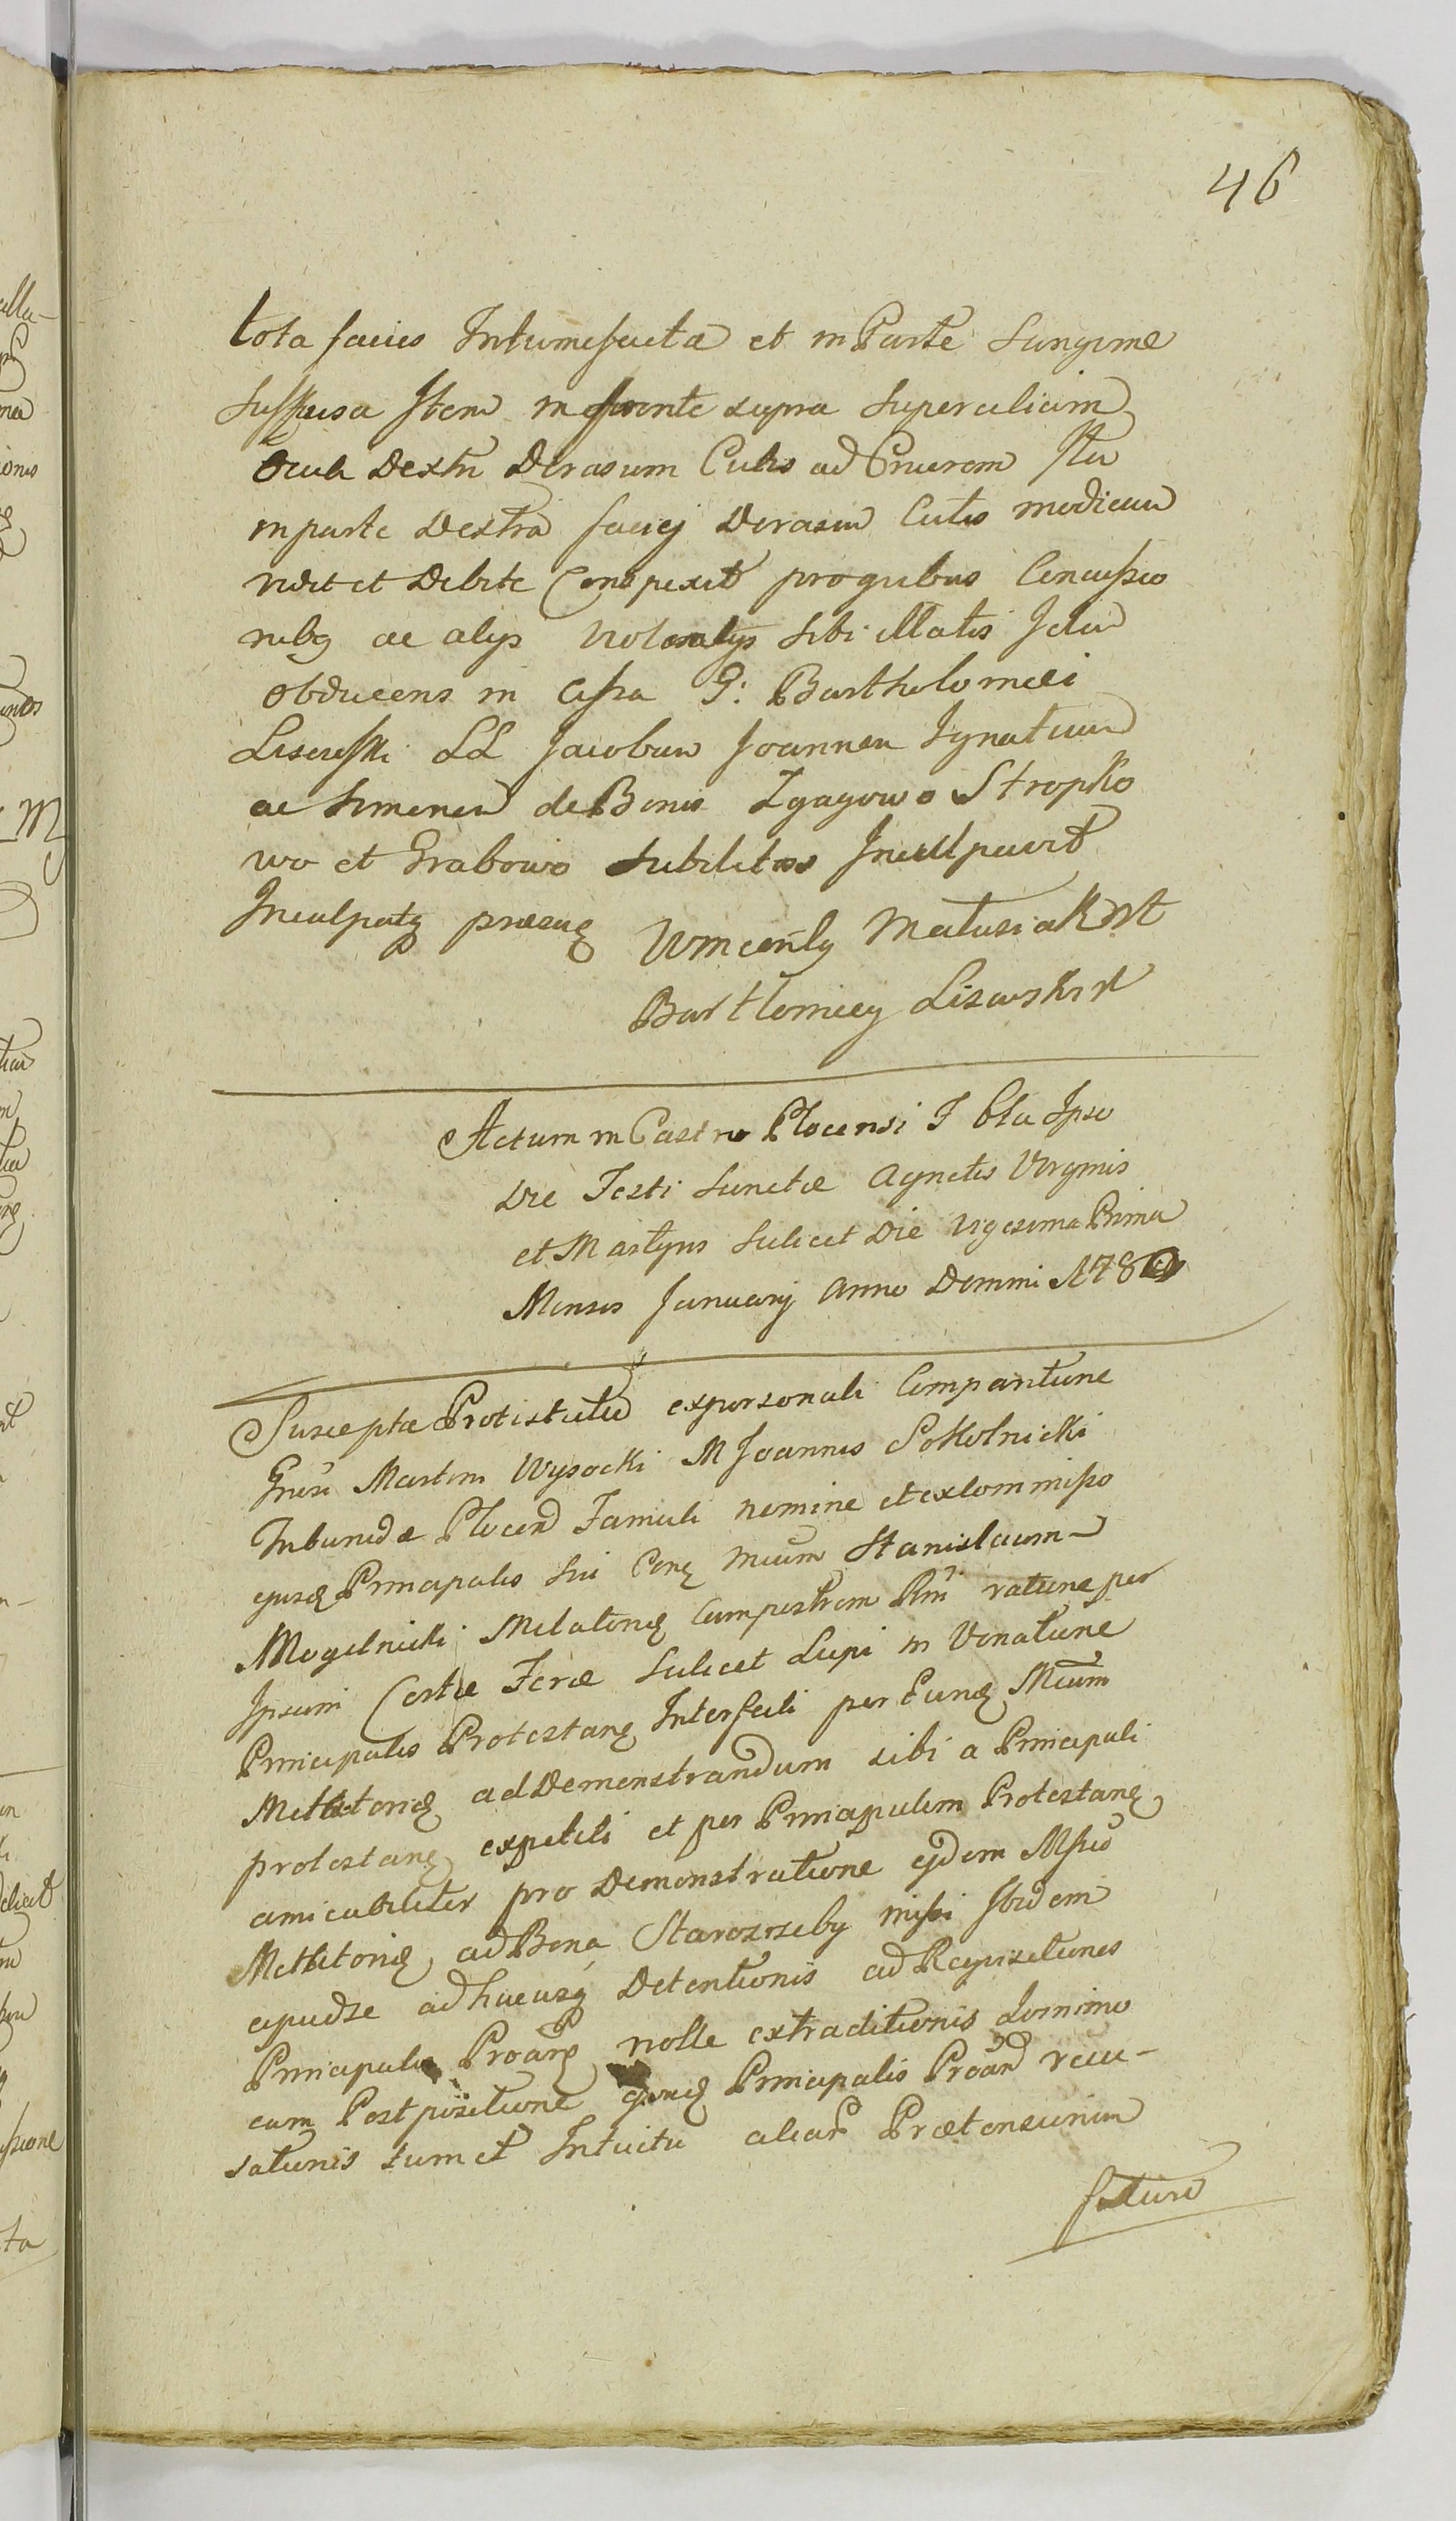 46
tota facies Intumefacta et in Parte Sangvine
suffusa Item in fronte supra Supercilium
Oculi Dextri Derasum Cutis ad Cruorem Itu
in parte Dextra faciej Derasam Cutis modicum
vidit et Debite Conspexit pro quibus Concussio
nibg ac alijs violentijs sibi illatis Idem
obducens in Cassa G: Bartholomaei
Lisewski LL Jacobum Joannem Ignatium
ac Simonem de Bonis Zgagowo Stropko
wo et Grabowo Subditos Inculpavit
Inculpatq praesens Wincenty Matusiak mt
Bartlomiey Lisawski mt
Actum in Castro Plocensi F bta Ipso
Die Festi Sanctae Agnetis Virginis
et Martyris Scilicet Die Vigesima Prima
Mensis Januarij Anno Domini 178
Suscepta Protestatio ex personali Comparitione
Gnsi Martini Wysocki M Joannis Sokolnicki
Tribunidae Plocen Famuli nomine et ex Commisso
ejusd Principalis Sui Conq Mcum Stanislaum
Mogilnicki Metatorem Campestrem Rni ratione per
Ipsum Certae Ferae Scilicet Lupi in Venatione
Principalis Protestanq Interfecti per Eund Mcum
Mettatorid ad Demonstrandum sibi a Principali
protestanq expetiti et per Principalem Protestanq
amicabiliter pro Demonstratione ejdem Msco
Mettatorid ad Bona Staroźreby missi Ibidem
apud se ad hucusq Detentionis ad Reqvisitiones
Principalis Proanq nolle extraditionis Domino
cum Postpositione ejusd Principalis Proan recu-
sationis tum et Intuitu aliar Praetensionum
future